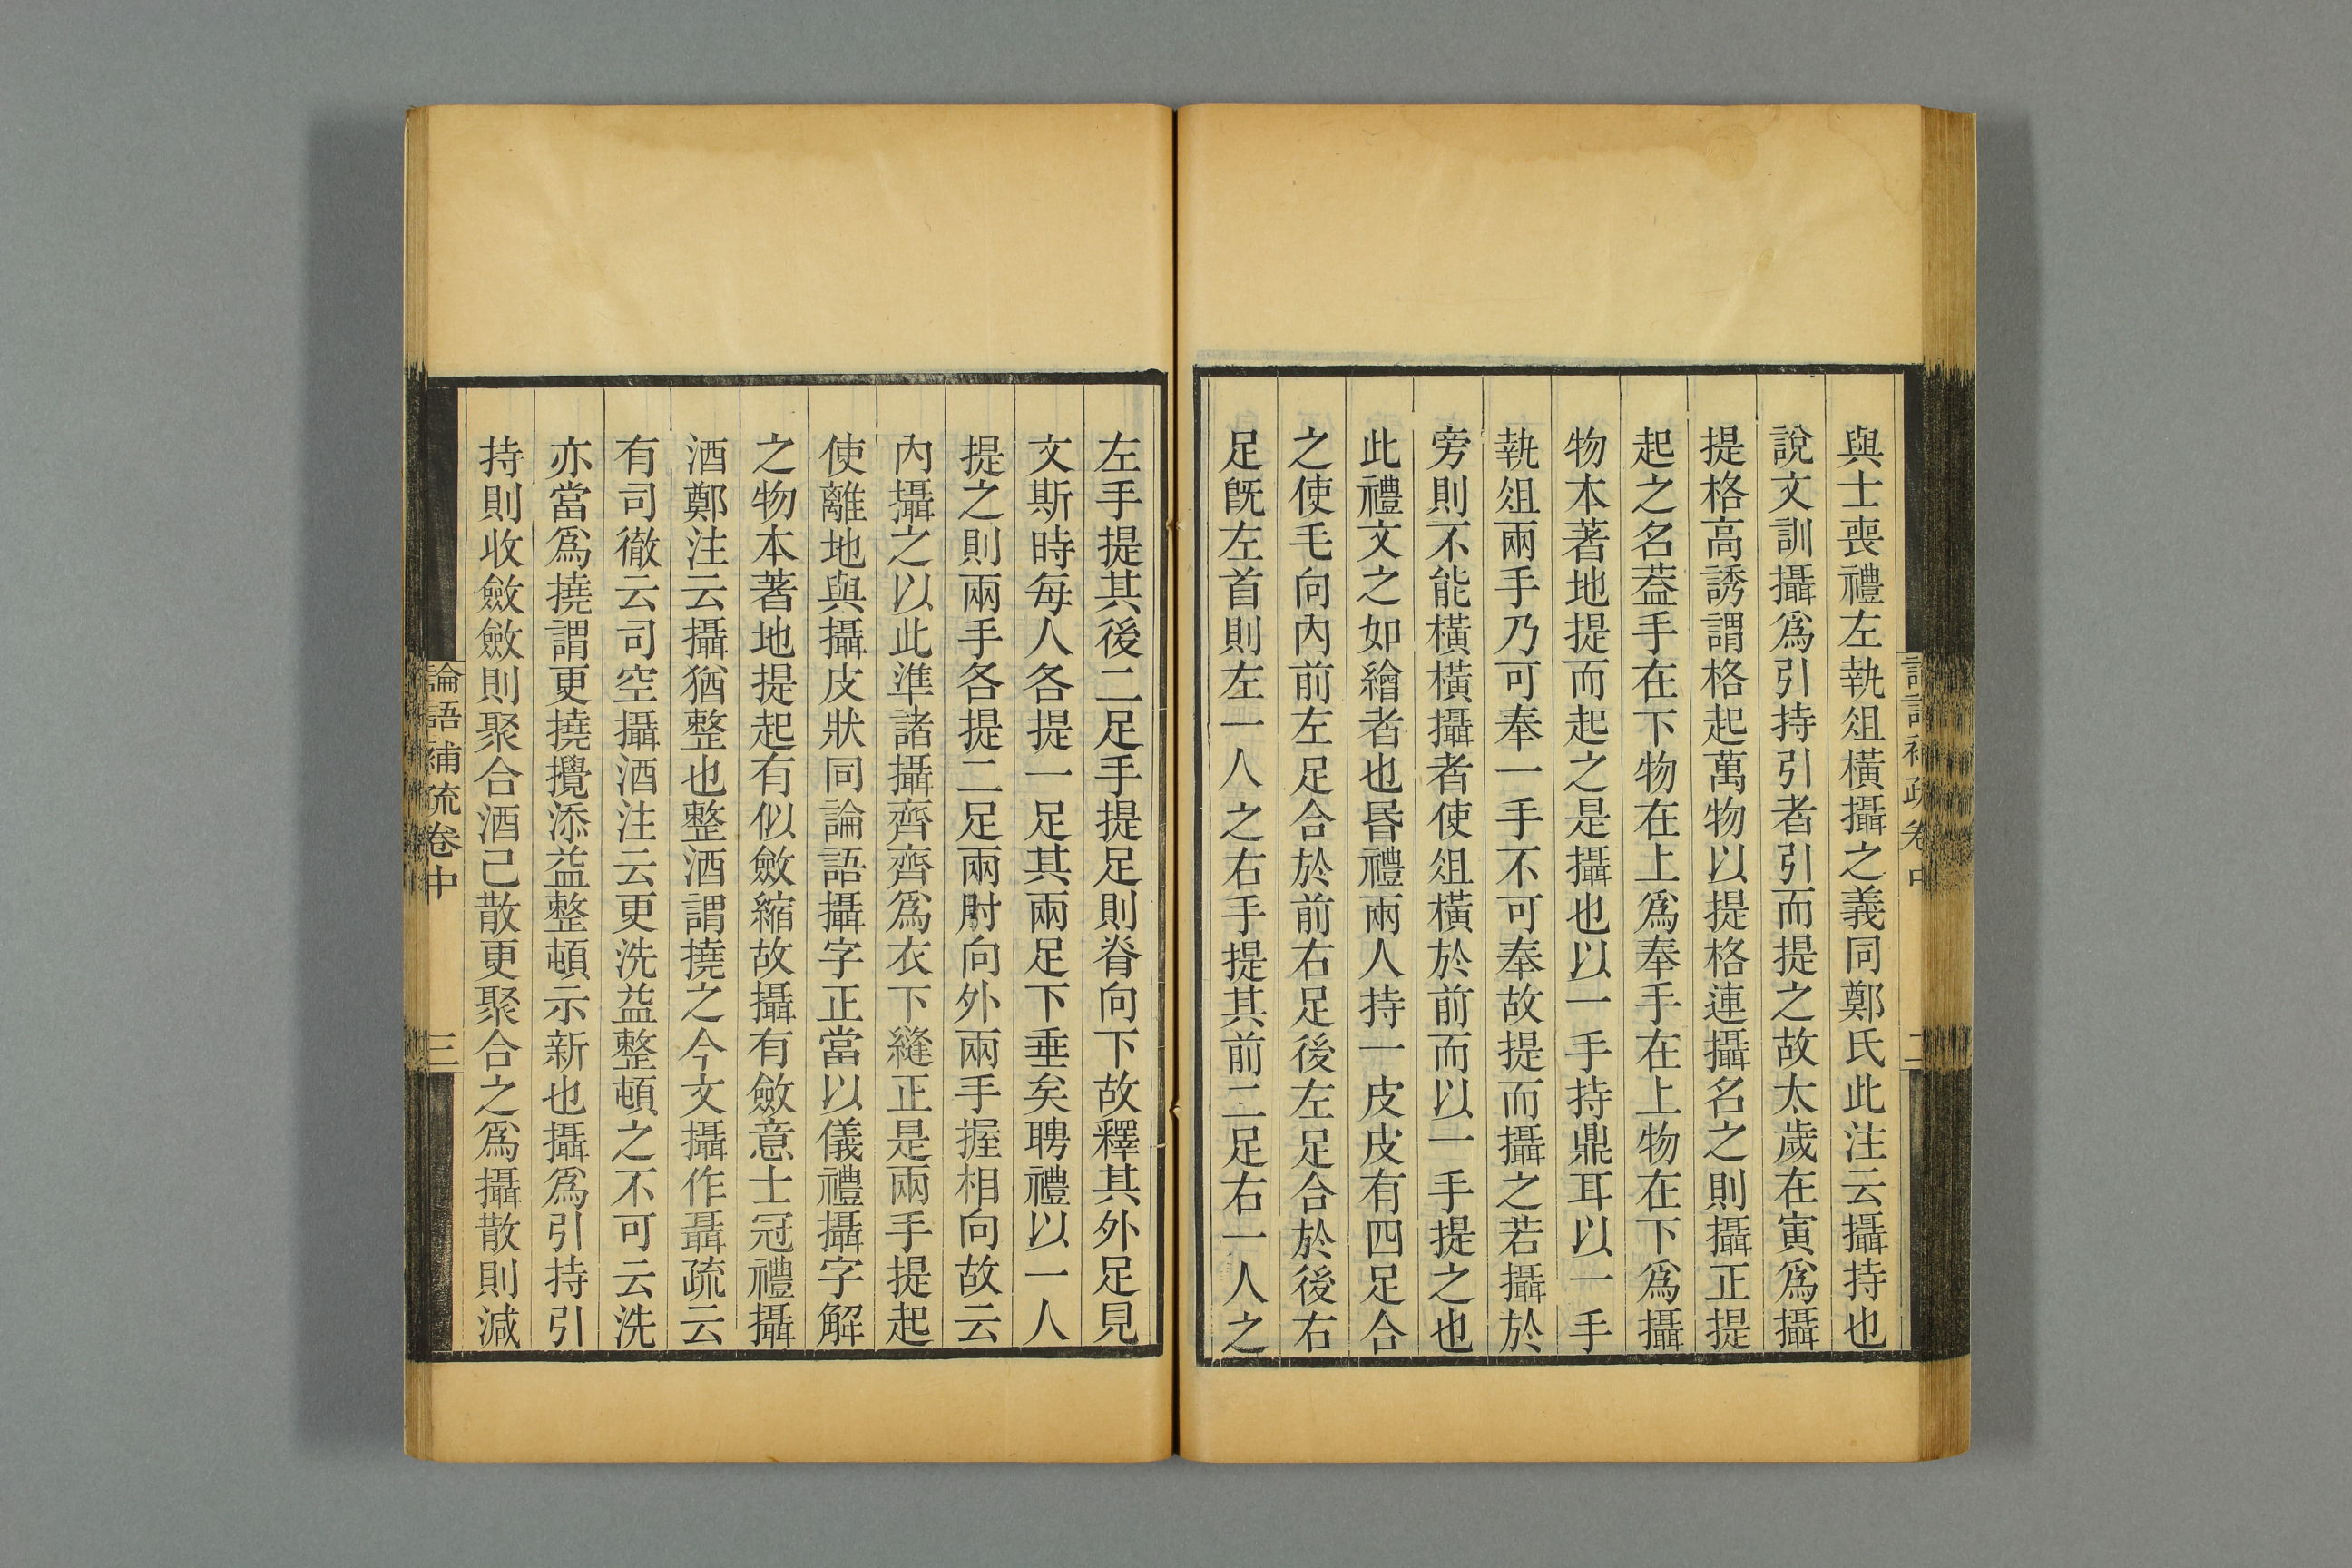 與士喪禮左執俎橫攝之義同鄭氏此注云攝持也
說文訓攝爲引持引者引而提之故太歲在寅爲攝
提格高誘謂格起萬物以提格連攝名之則攝正提
起之名葢手在下物在上爲奉手在上物在下爲攝
物本著地提而起之是攝也以一手持鼎耳以一手
執俎兩手乃可奉一手不可奉故提而攝之若攝於
旁則不能橫橫攝者使俎橫於前而以一手提之也
此禮文之如繪者也昏禮兩人持一皮皮有四足合
之使毛向內前左足合於前右足後左足合於後右
足旣左首則左一人之右手提其前二足右一人之
左手提其後二足手提足則脊向下故釋其外足見
文斯時每人各提一足其兩足下垂矣聘禮以一人
提之則兩手各提二足兩肘向外兩手握相向故云
內攝之以此準諸攝齊齊爲衣下縫正是兩手提起
使離地與攝皮狀同論語攝字正當以儀禮攝字解
之物本著地提起有似斂縮故攝有斂意士冠禮攝
酒鄭注云攝猶整也整酒謂撓之今文攝作聶疏云
有司徹云司空攝酒注云更洗益整頓之不可云洗
亦當爲撓謂更撓攪添益整頓示新也攝爲引持引
持則收斂斂則聚合酒己散更聚合之爲攝散則減
論語補疏卷中
三